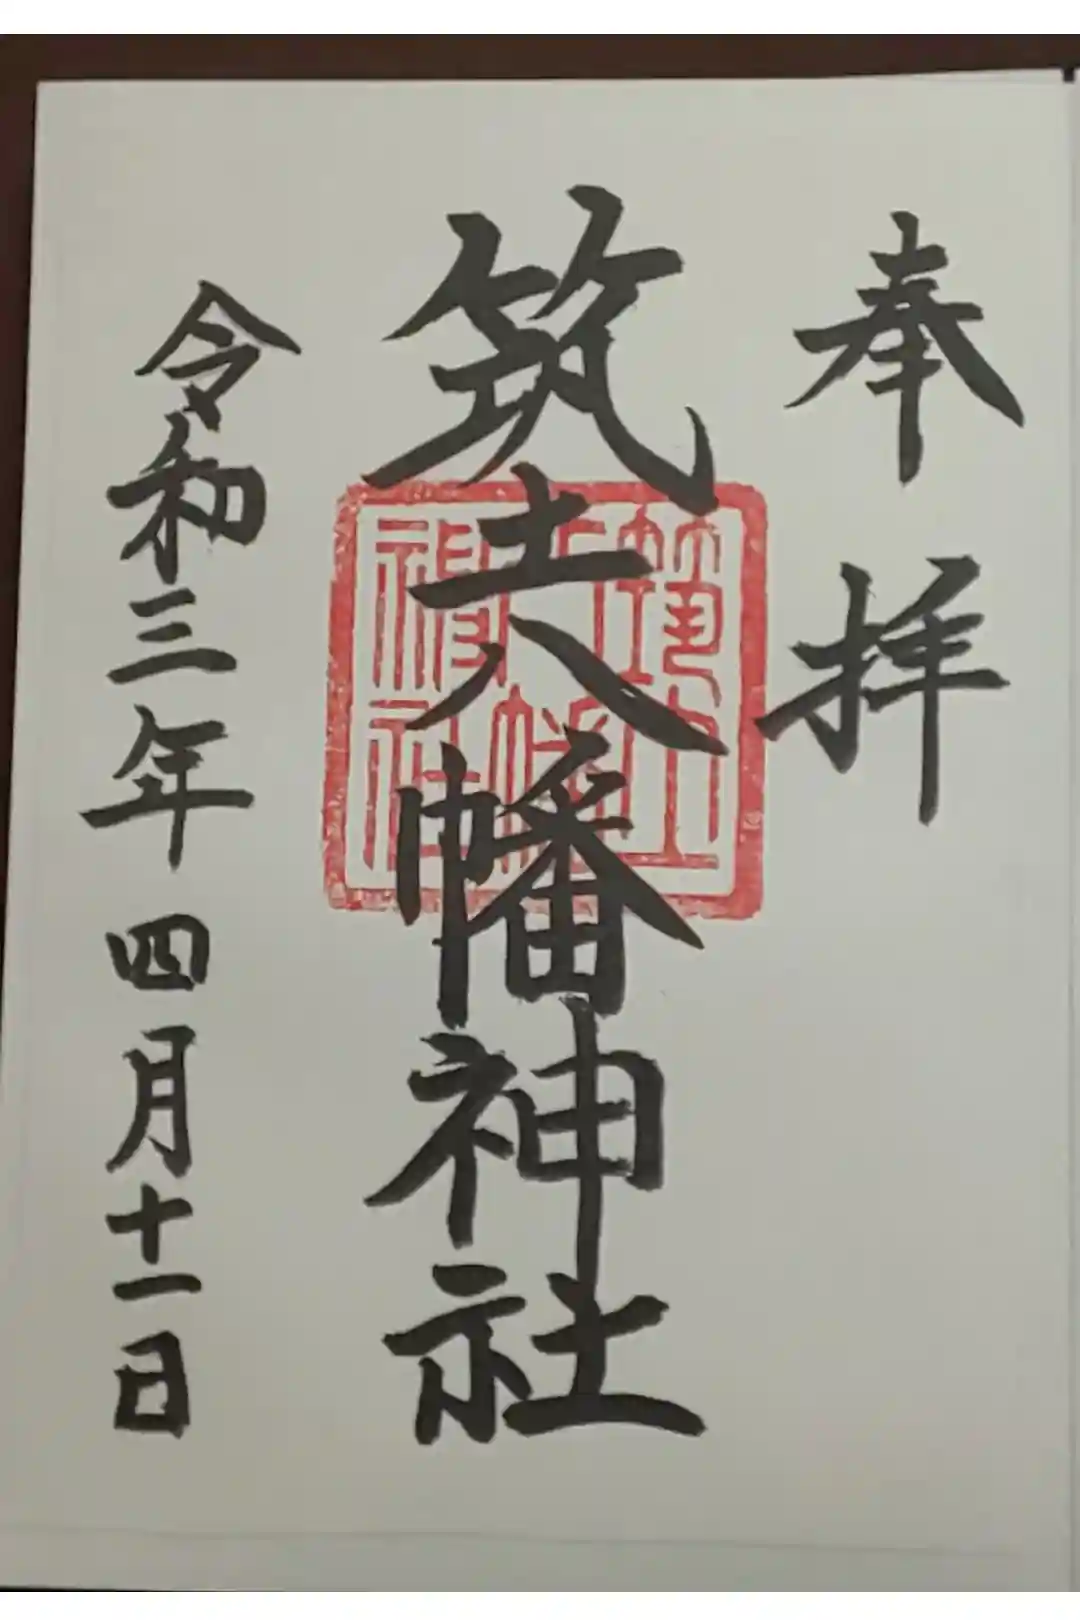 奉拝
筑土八幡神社
令和三年四月十一日
筑土
八幡
神社